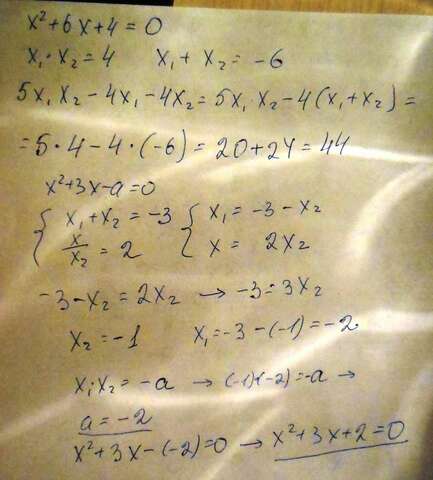 x²+6x+4=0
x₁·x₂=4 x₁+x₂=-6
5x₁x₂-4x₁-4x₂=5x₁·x₂-4(x₁+x₂)=
=5·4-4·(-6)=20+24=44
x²+3x-a=0
{ x₁+x₂=-3 { x₁=-3-x₂
x/x₂=2 x=2x₂
-3-x₂=2x₂ → -3=3x₂
x₂=-1 x₁=-3-(-1)=-2
x₁x₂=-a → (-1)·(-2)=-a →
a=-2
x²+3x-(-2)=0 → x²+3x+2=0